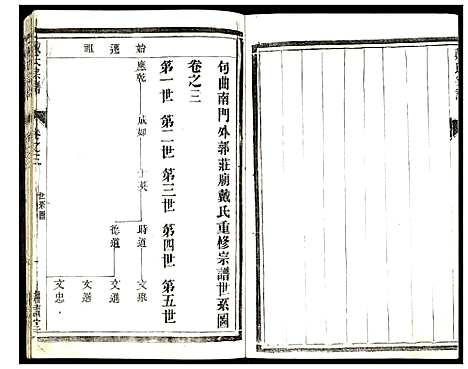 句曲南門外郭莊廟戴氏重修宗譜世系圖
卷之三
第一世 第二世 第三世 第四世 第五世
始
遷
祖
應乾
成
時道
德道
文
文選
文選
文忠
卷之三
世系圖